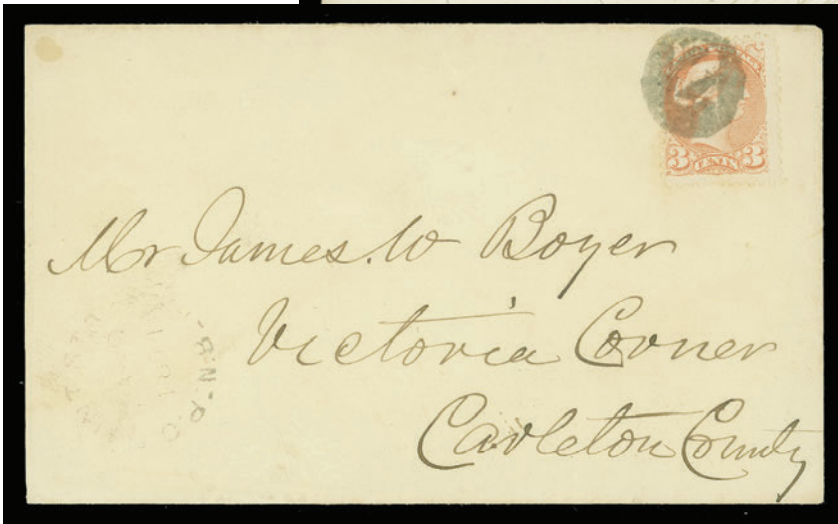 3 CENTS 3
Mr James. W Boyer
Victoria Corner
Carleton County
N.B.